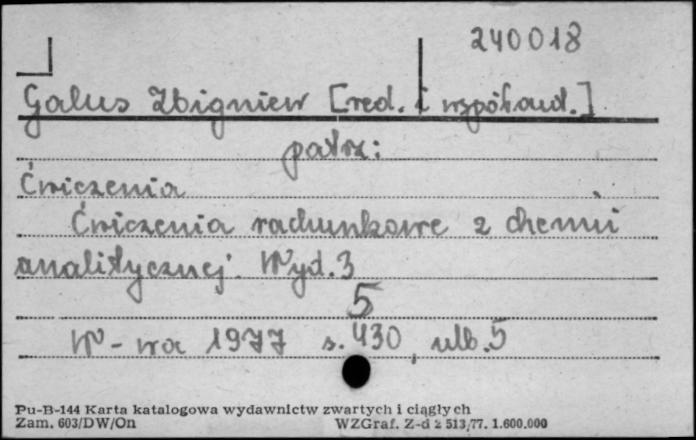 240018
Galus Zbigniew [red. i współaut.]
patrz:
Ćwiczenia
Ćwiczenia rachunkowe z chemii
analitycznej. Wyd. 3
5
W-wa 1977 s. 430, ulb. 5
Pu-B-144 Karta katalogowa wydawnictw zwartych i ciągłych
Zam. 603/DW/On WZGraf. Z-d 2 513/77. 1.600.000